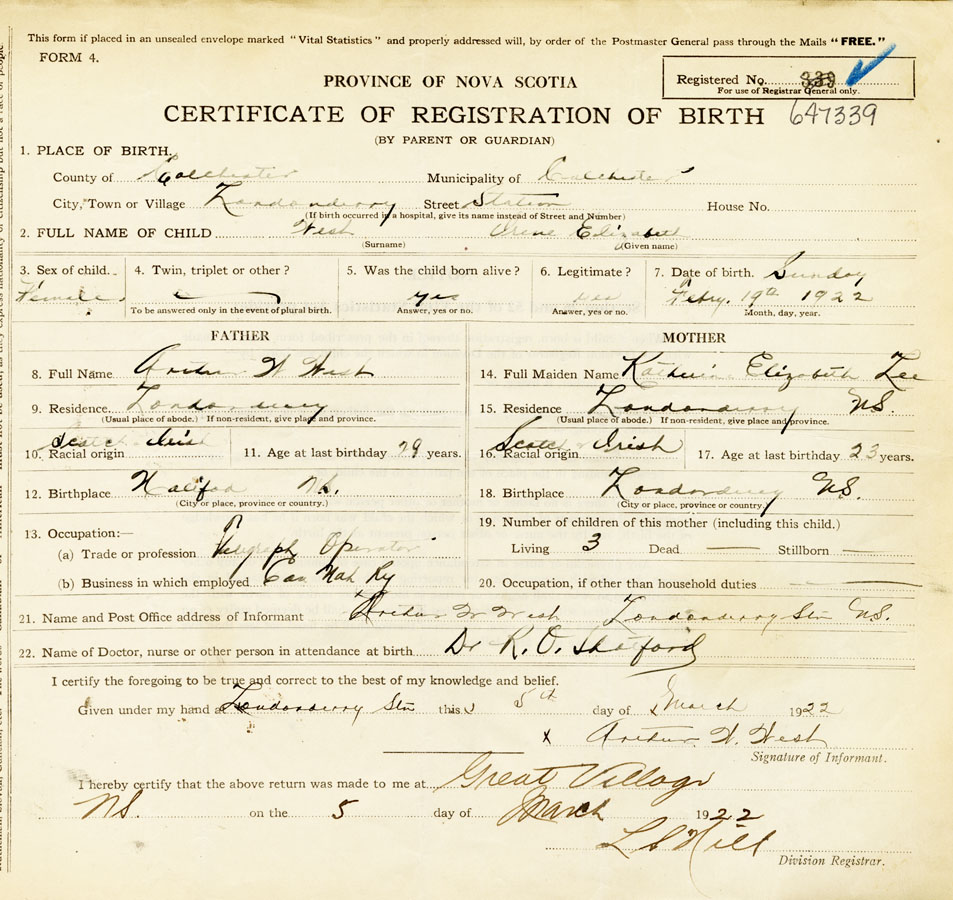 This form if placed in an unsealed envelope marked "Vital Statistics" and properly addressed will, by order of the Postmaster General pass through the Mails "FREE."
FORM 4.
Registered No. 339
For use of Registrar General only.
PROVINCE OF NOVA SCOTIA
CERTIFICATE OF REGISTRATION OF BIRTH 647339
(BY PARENT OR GUARDIAN)
1. PLACE OF BIRTH.
County of Colchester Municipality of Colchester
City, Town or Village Londonderry Street Station House No.
(If birth occurred in a hospital, give its name instead of Street and Number)
2. FULL NAME OF CHILD West Irene Elizabeth
(Surname) (Given name)
3. Sex of child. 4. Twin, triplet or other? 5. Was the child born alive? 6. Legitimate? 7. Date of birth. Sunday
Female yes yes Febry. 19th 1922
To be answered only in the event of plural birth. Answer, yes or no. Answer, yes or no. Month, day, year.
FATHER MOTHER
8. Full Name Arthur W West 14. Full Maiden Name Katherine Elizabeth Lee
9. Residence Londonderry 15. Residence Londonderry NS.
(Usual place of abode.) If non-resident, give place and province. (Usual place of abode.) If non-resident, give place and province.
Scotch Irish Scotch Irish
10. Racial origin 11. Age at last birthday 29 years. 16. Racial origin 17. Age at last birthday 23 years.
12. Birthplace Halifax N.S. 18. Birthplace Londonderry NS.
(City or place, province or country.) (City or place, province or country.)
13. Occupation:— 19. Number of children of this mother (including this child.)
(a) Trade or profession Telegraph Operator Living 3 Dead — Stillborn —
(b) Business in which employed Can Nat Ry 20. Occupation, if other than household duties —
21. Name and Post Office address of Informant Arthur W West Londonderry Stn NS.
22. Name of Doctor, nurse or other person in attendance at birth. Dr R. O. Shatford
I certify the foregoing to be true and correct to the best of my knowledge and belief.
Given under my hand at Londonderry Stn this 5th day of March 1922
x Arthur W. West
Signature of Informant.
I hereby certify that the above return was made to me at Great Village
NS. on the 5 day of March 1922
L S Hill
Division Registrar.